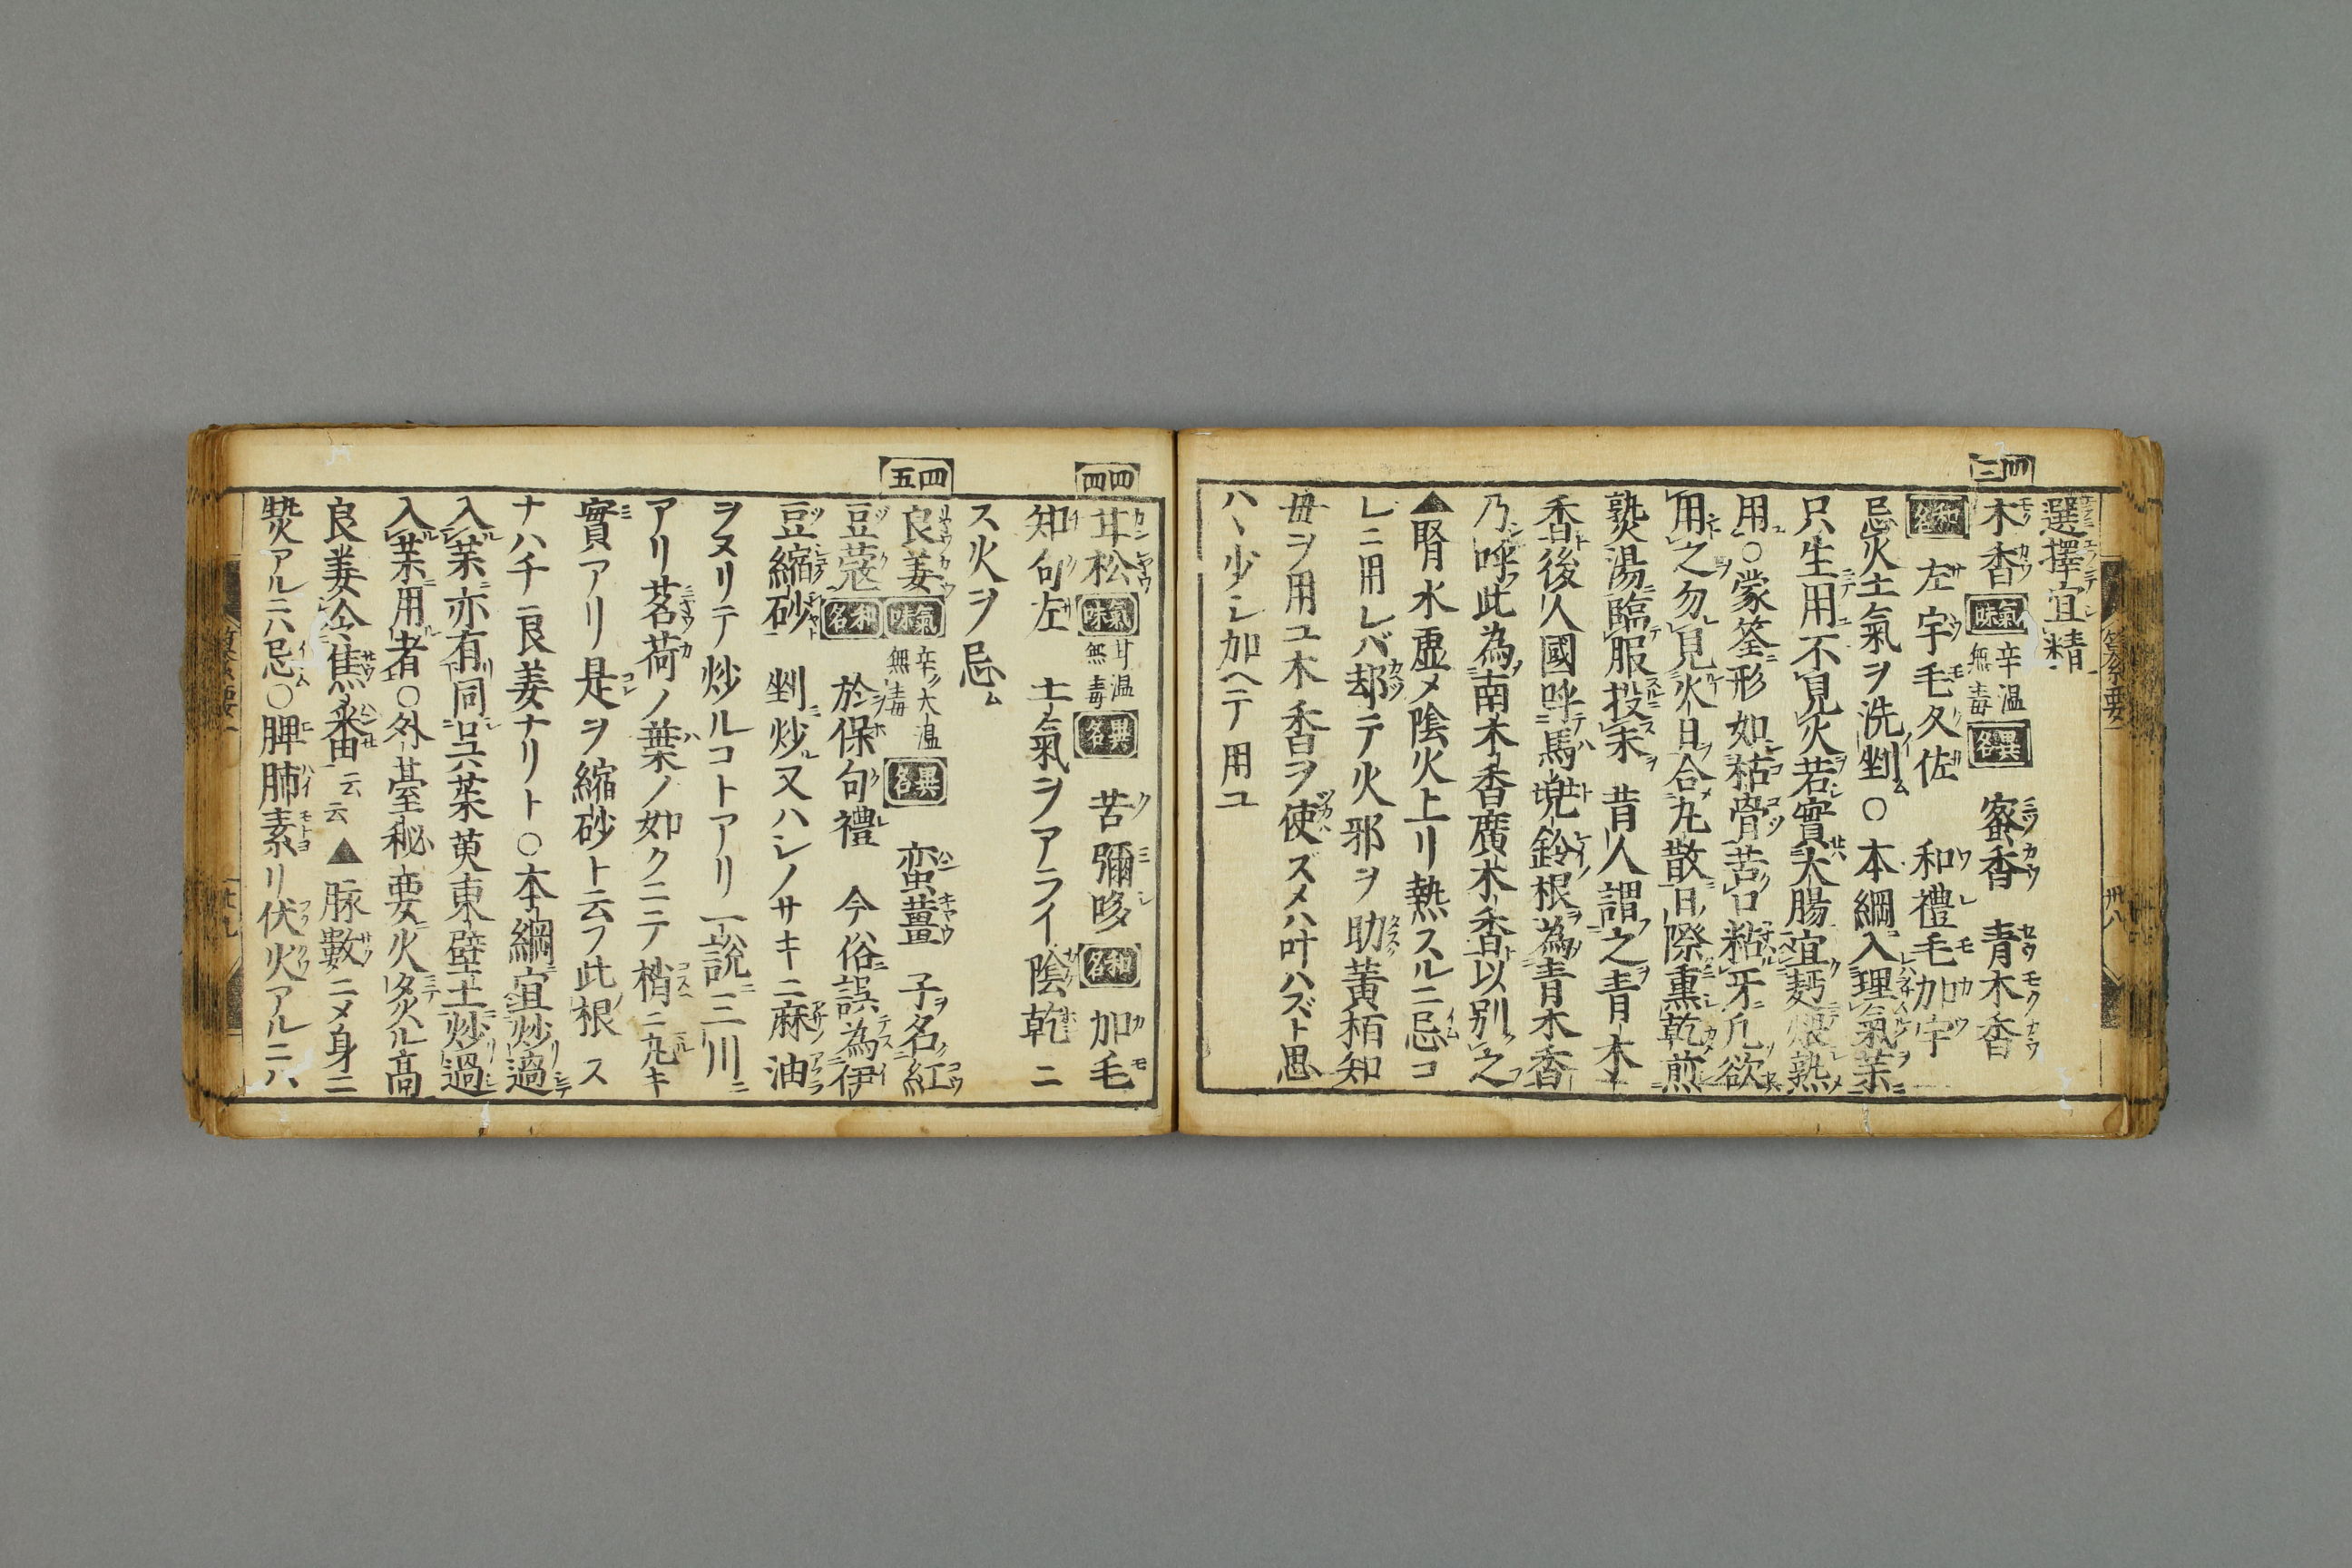 四三
選擇宜精
木香 氣味 辛温無毒 異名 蜜香 青木香
和名 左宇毛久佐 和禮毛加宇
忌火土氣ヲ洗剉○本綱入理氣藥
只生用不見火若實大腸宜麪煨熟
用○蒙筌形如枯骨苦口粘牙凢欲
用之勿見火日合丸散日際熏乾煎
熟湯臨服投末 昔人謂之青木
香後人國呼馬兠鈴根為青木香
乃呼此為南木香廣木香以別之
▲腎水虚メ陰火上リ熱スルニ忌コ
レニ用レバ却テ火邪ヲ助黄栢知
毋ヲ用ユ木香ヲ使ズメハ叶ハズト思
ハヽ少シ加ヘテ用ユ
四四
甘松 氣味 甘温無毒 異名 苦彌哆 和名 加毛
知句左 土氣ヲアライ陰乾ニ
ス火ヲ忌
四五
良姜 氣味 辛大温無毒 異名 蛮薑 子名紅
豆蔻 和名 於保句禮 今俗誤為伊
豆縮砂 剉炒又ハシノサキニ麻油
ヲヌリテ炒ルコトアリ一說三川ニ
アリ茗荷ノ葉ノ如クニテ梢ニ丸キ
實アリ是ヲ縮砂ト云フ此根ス
ナハチ良姜ナリト○本綱宜炒過
入藥亦有同吳茱萸東壁土炒過
入藥用者○外臺秘要火炙ル高
良姜今焦香云云▲脉數ニメ身ニ
熱アルニハ忌○脾肺素リ伏火アルニハ